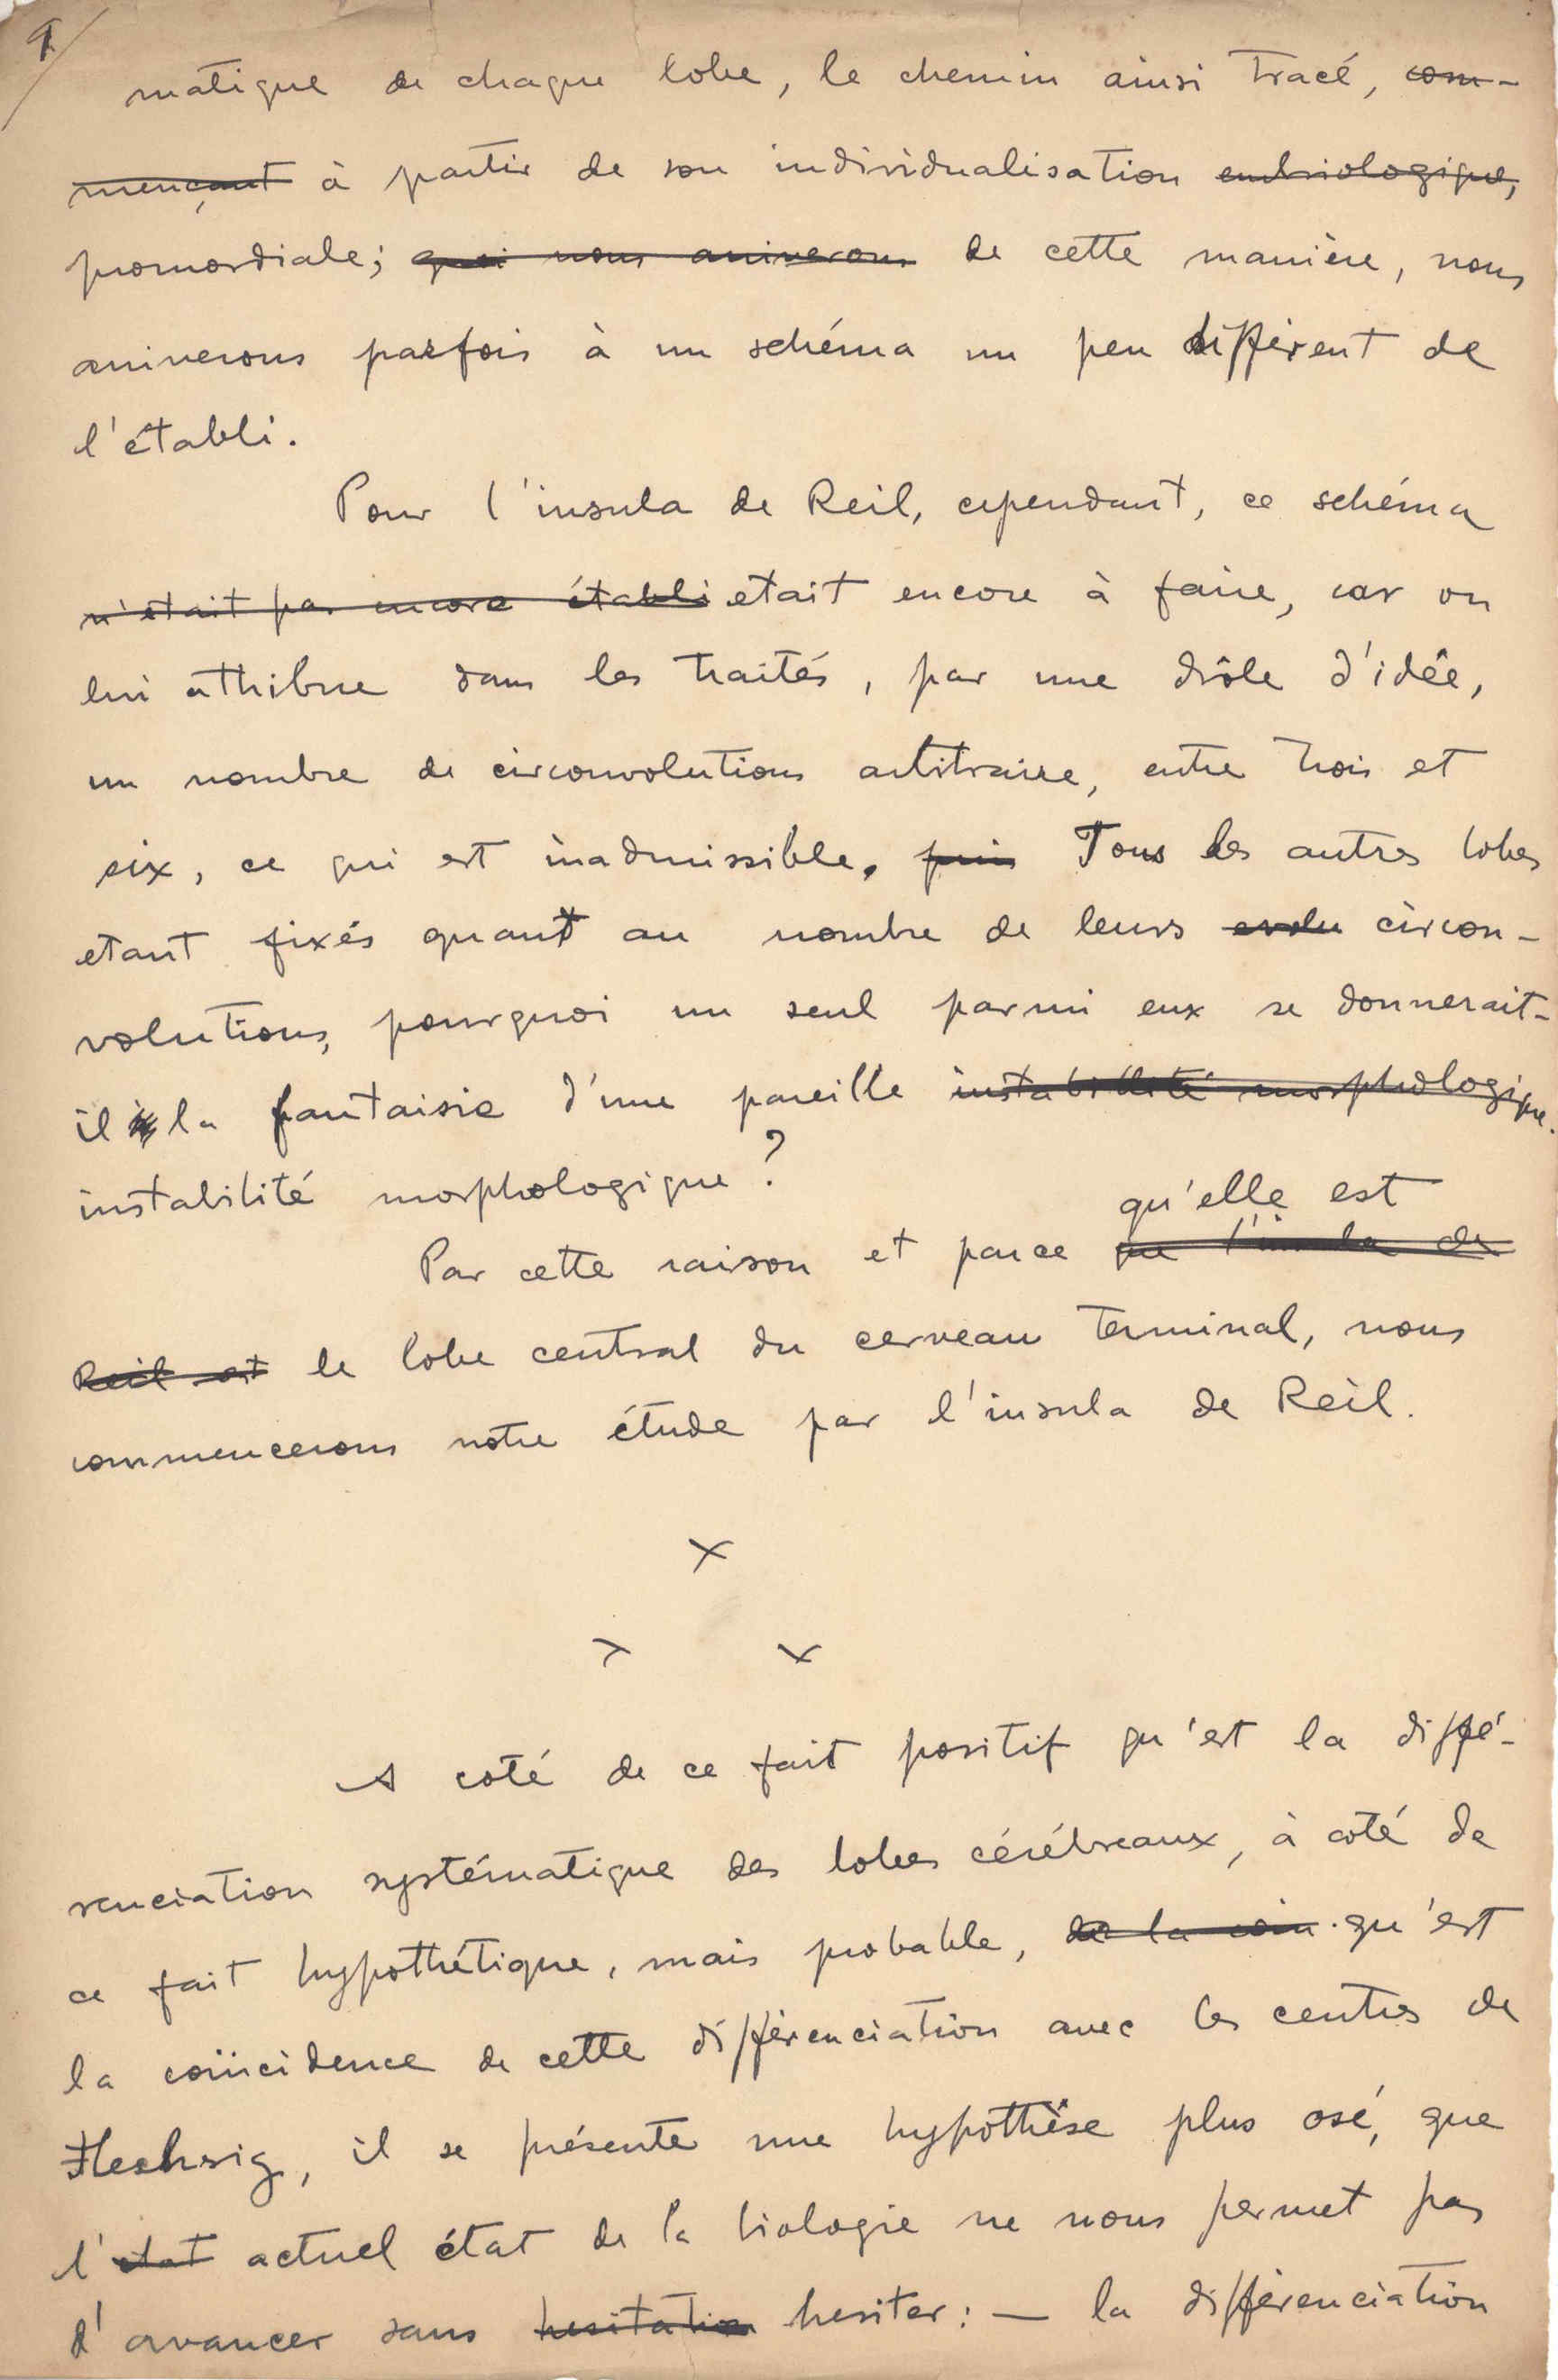 9
matique de chaque lobe, le chemin ainsi tracé, com-
mençant à partir de son individualisation embriologique,
promordiale; quoi nous arriverons de cette manière, nous
arriverons parfois à un schéma un peu différent de
l'établi.
Pour l'insula de Reil, cependant, ce schéma
n'était pas encore établi etait encore à faire, car on
lui athribue dans les traités, par une drôle d'idée,
un nombre de circonvolutions arbitraire, entre trois et
six, ce qui est inadmissible. puis Tous les autres lobes
etant fixés quant au nombre de leurs evolu circon-
volutions, pourquoi un seul parmi eux se donnerait-
il la fantaisie d'une pareille instabilité morphologique.
instabilité morphologique?
qu'elle est
Par cette raison et parce que l'insula de
Reil est le lobe central du cerveau terminal, nous
commencerons notre étude par l'insula de Reil.
x
x x
A coté de ce fait positif qu'est la diffé-
renciation systématique des lobes cérébreaux, à coté de
ce fait hypothétique, mais probable, de la coin qu'est
la coïncidence de cette différenciation avec les centres de
Flechsig, il se présente une hypothèse plus osé, que
l'etat actuel état de la biologie ne nous permet pas
d'avancer sans hesitation hesiter: — la différenciation